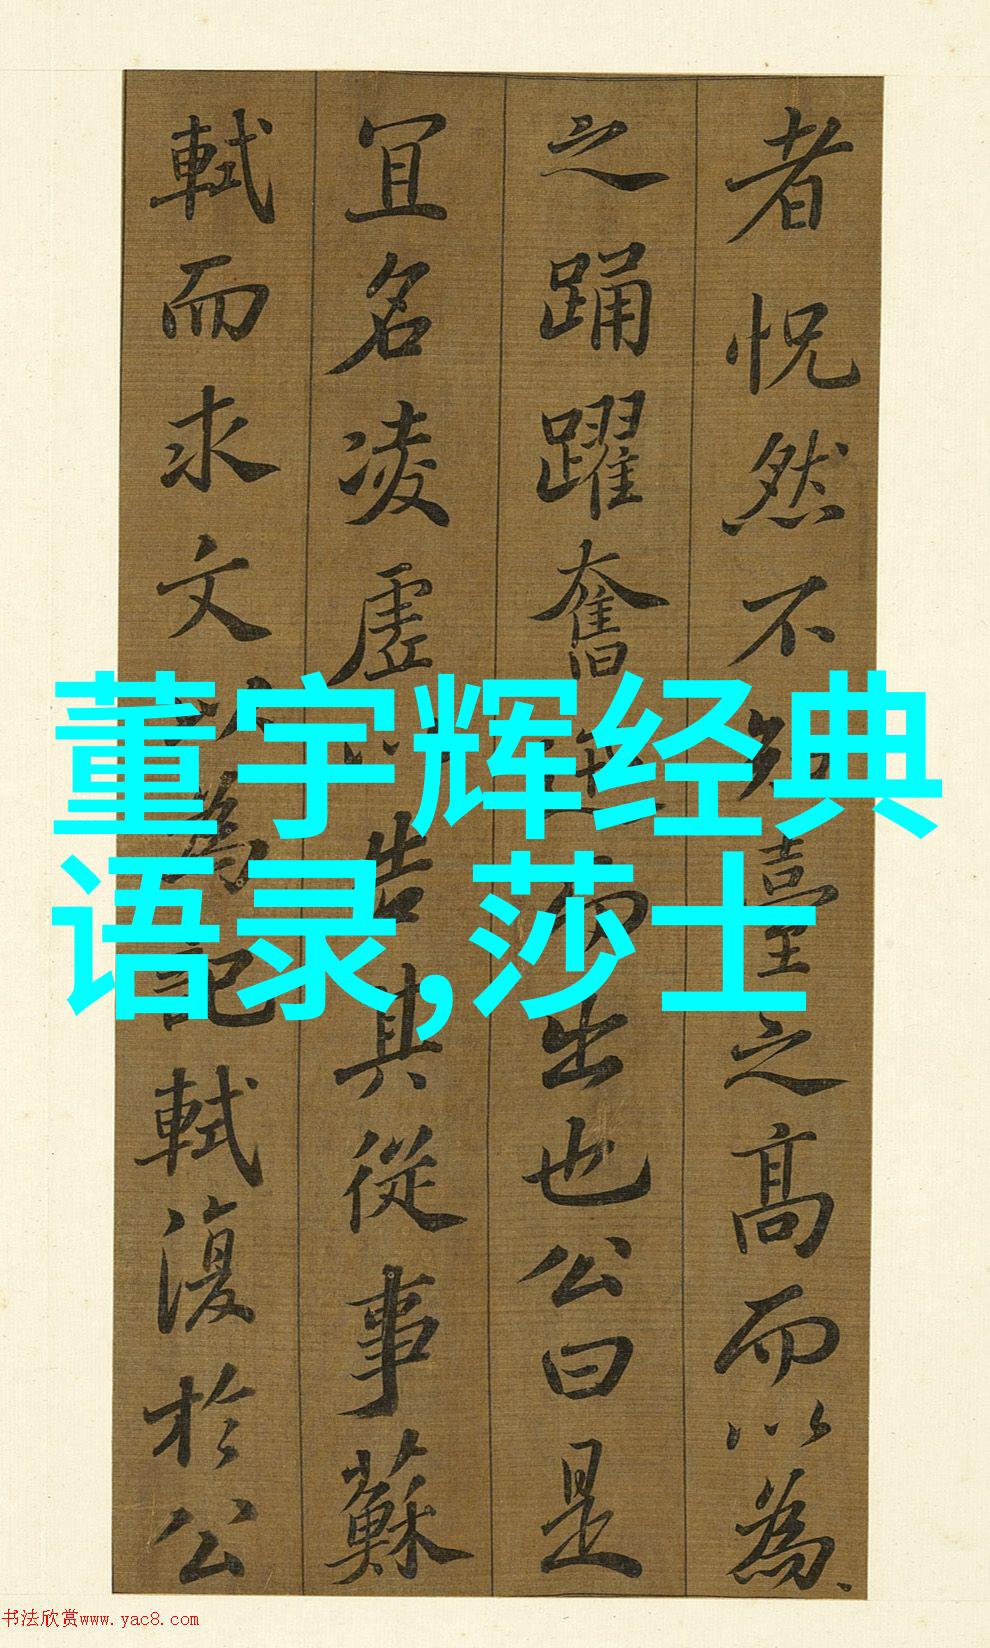 者怳然不知臺之高而以為
之踊躍奮迅而出也公曰是
冝名凌虛以告其從事蘇
軾而求文以為記軾復於公
董宇辉经典
语录,莎士
书法欣赏www.yac8.com